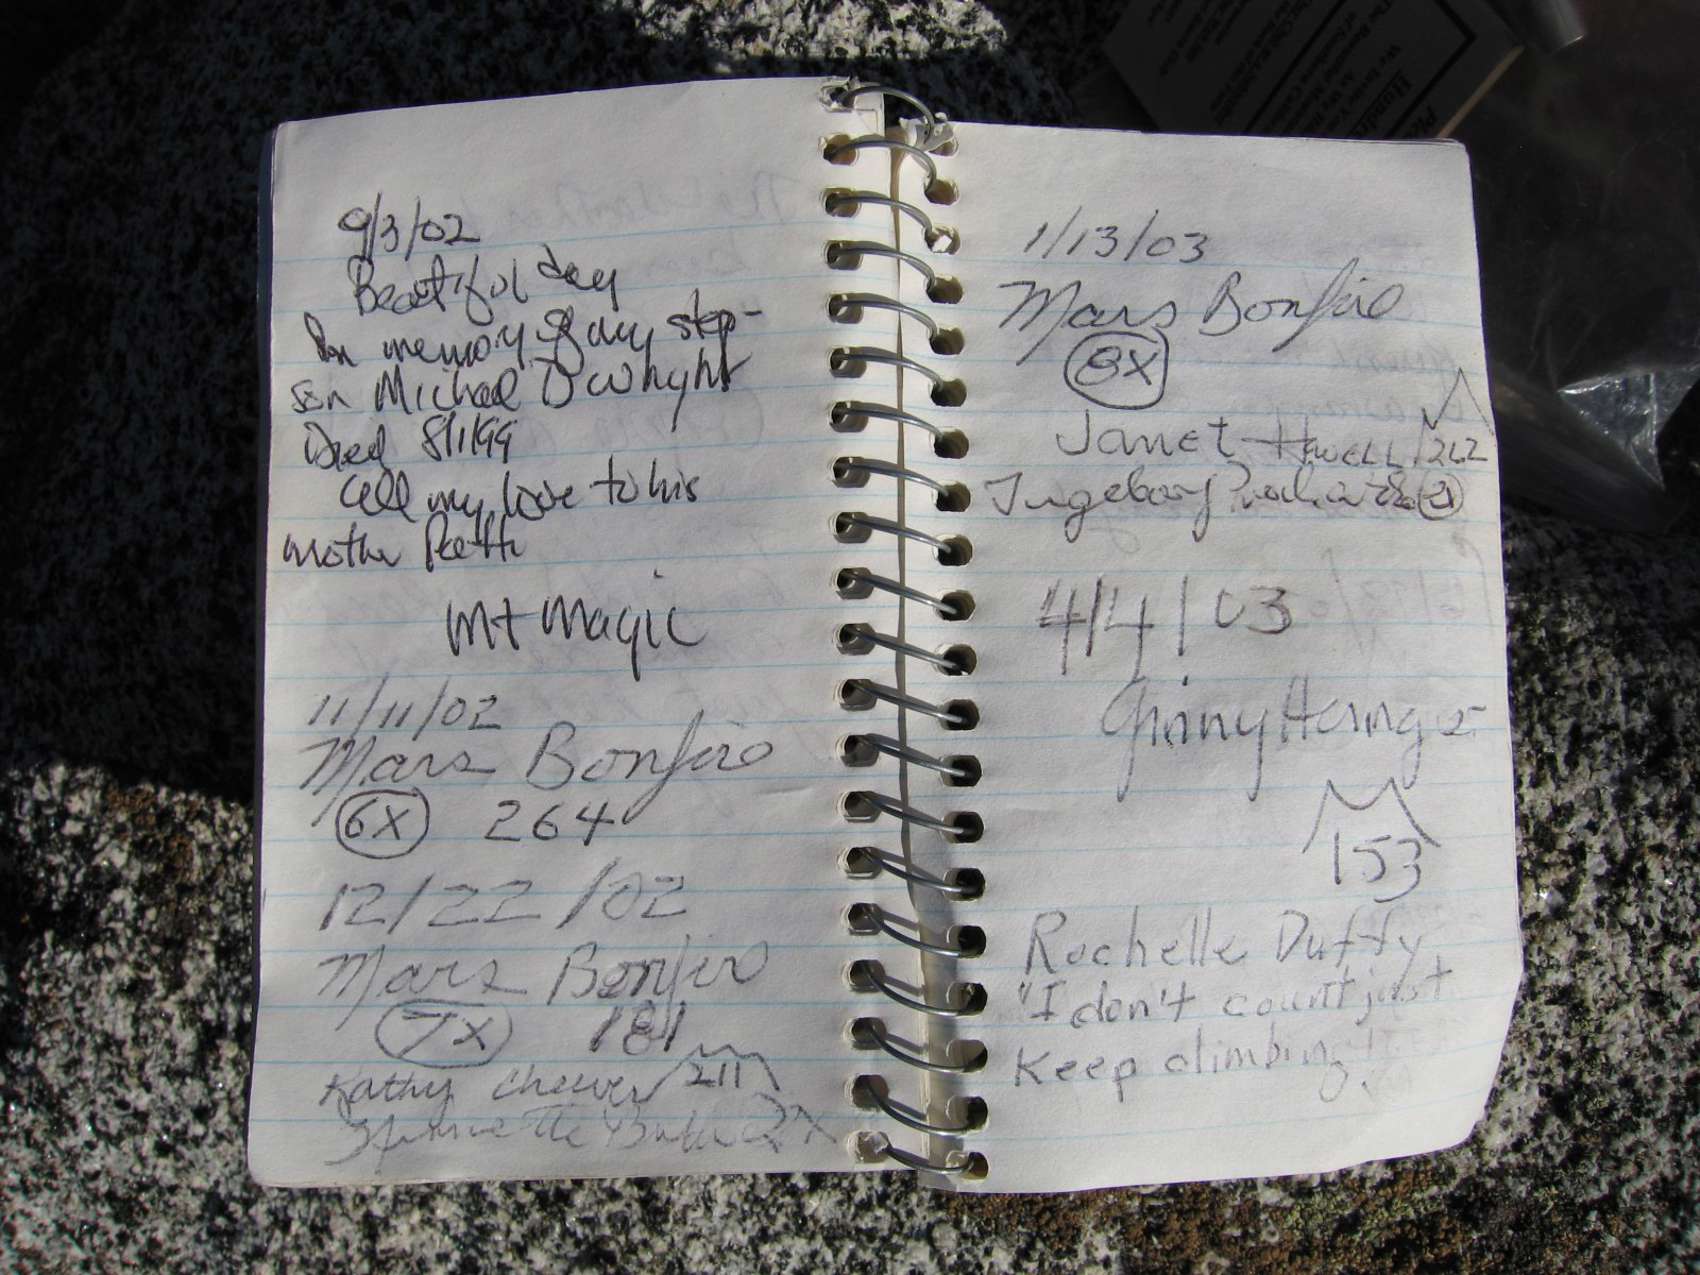 9/3/02
Beautiful day
In memory of my step-
son Michael Dwhyht
Died 8/1/99
all my love to his
mother
Mt Magic
11/11/02
Mars Bonfire
6X 264
12/22/02
Mars Bonfire
7X 181
Kathy 211
2X
1/13/03
Mars Bonfire
8X
Janet Howell 262
Ingeborg 21
4/4/03
Ginny Heringer
153
Rochelle Duffy
"I don't count just
Keep climbing!"